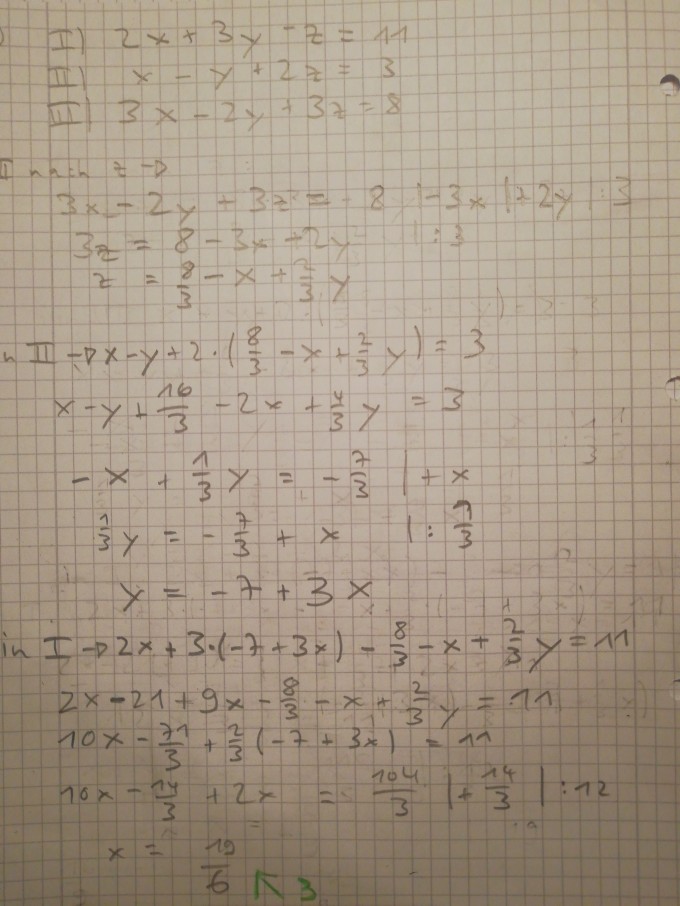 I) 2x + 3y - z = 11
II) x - y + 2z = 3
III) 3x - 2y + 3z = 8
nach z →
3x - 2y + 3z = 8 |-3x |+2y |:3
3z = 8 - 3x + 2y |:3
z = 8/3 - x + 2/3 y
II → x - y + 2·(8/3 - x + 2/3 y) = 3
x - y + 16/3 - 2x + 4/3 y = 3
- x + 1/3 y = - 7/3 | + x
1/3 y = - 7/3 + x |: 1/3
y = - 7 + 3x
in I → 2x + 3·(-7 + 3x) - 8/3 - x + 2/3 y = 11
2x - 21 + 9x - 8/3 - x + 2/3 y = 11
10x - 71/3 + 2/3 (-7 + 3x) = 11
10x - 14/3 + 2x = 104/3 |+ 14/3 | :12
x = 19/6 ↖ 3